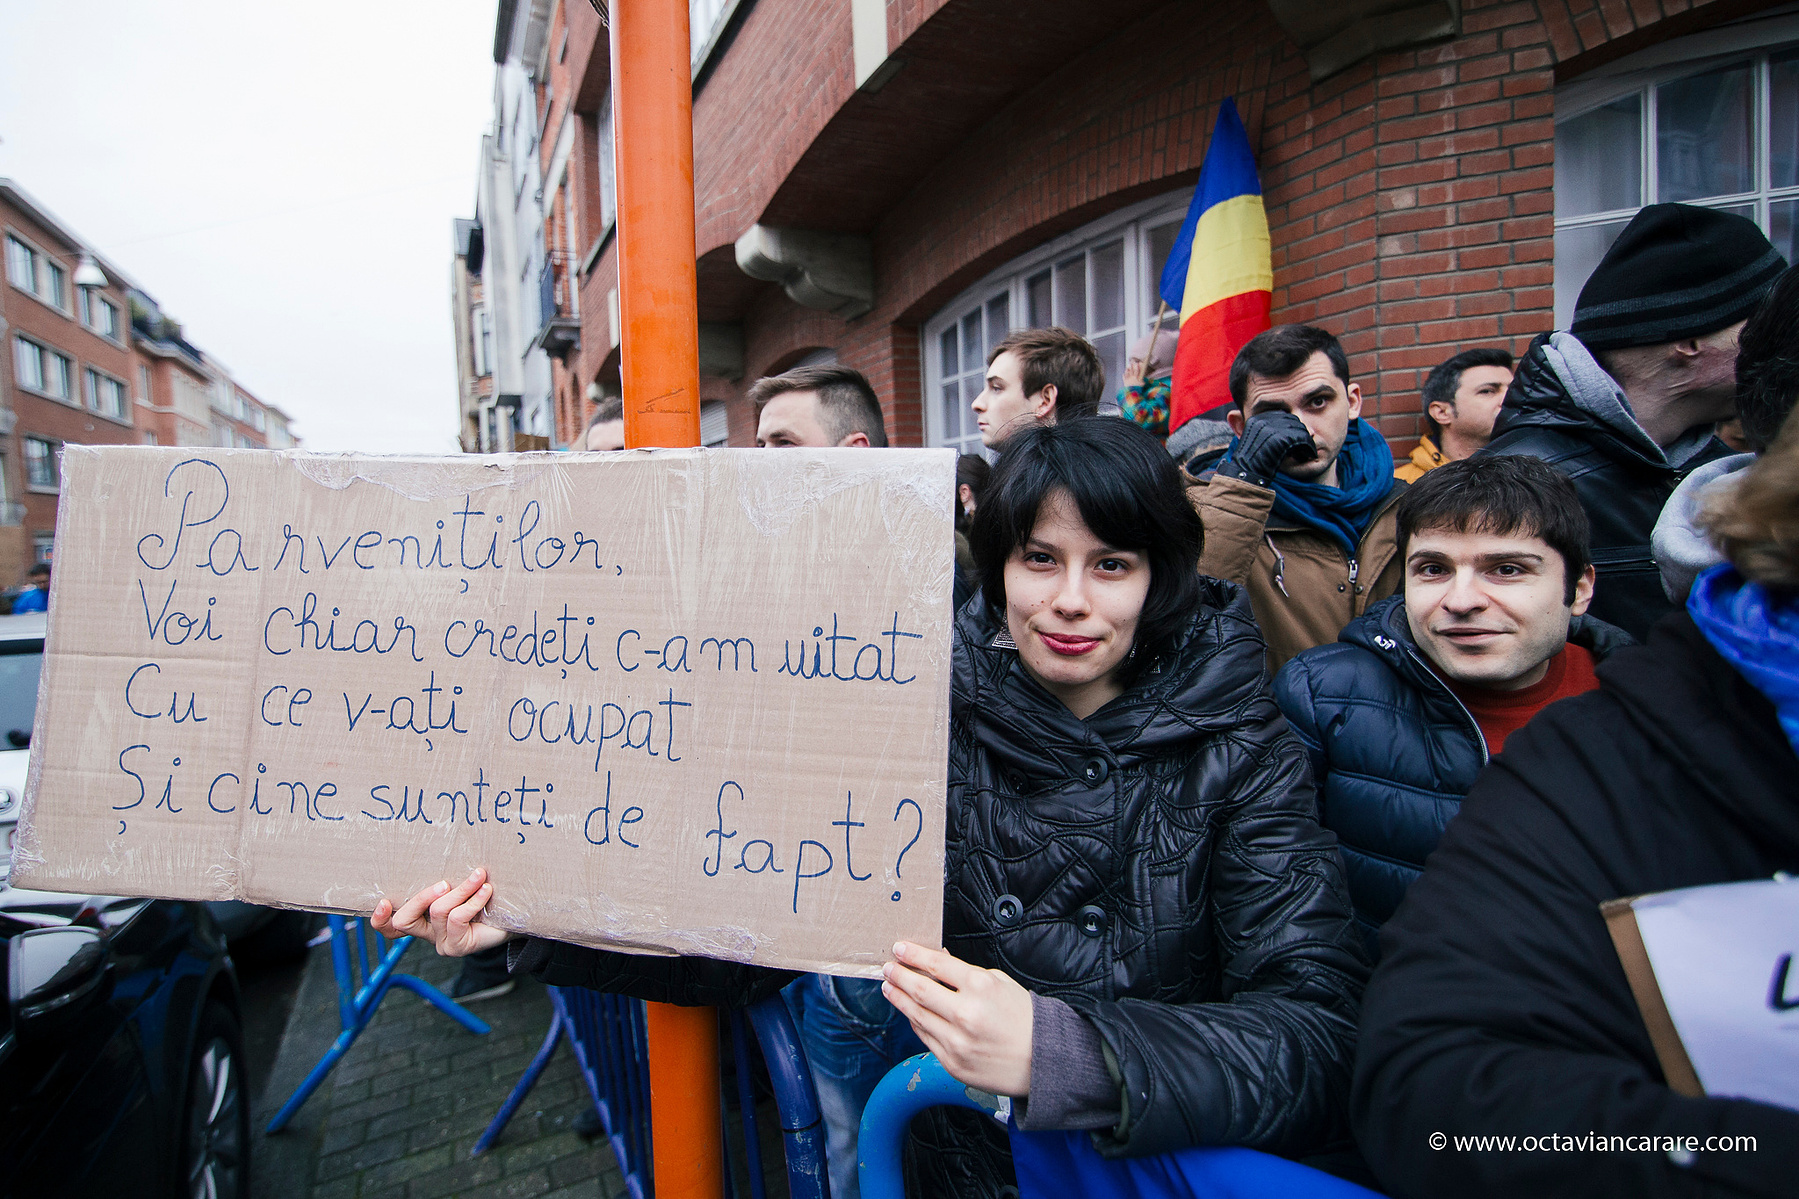 Parveniților,
Voi chiar credeți c-am uitat
Cu ce v-ați ocupat
Și cine sunteți de fapt?
© www.octaviancarare.com